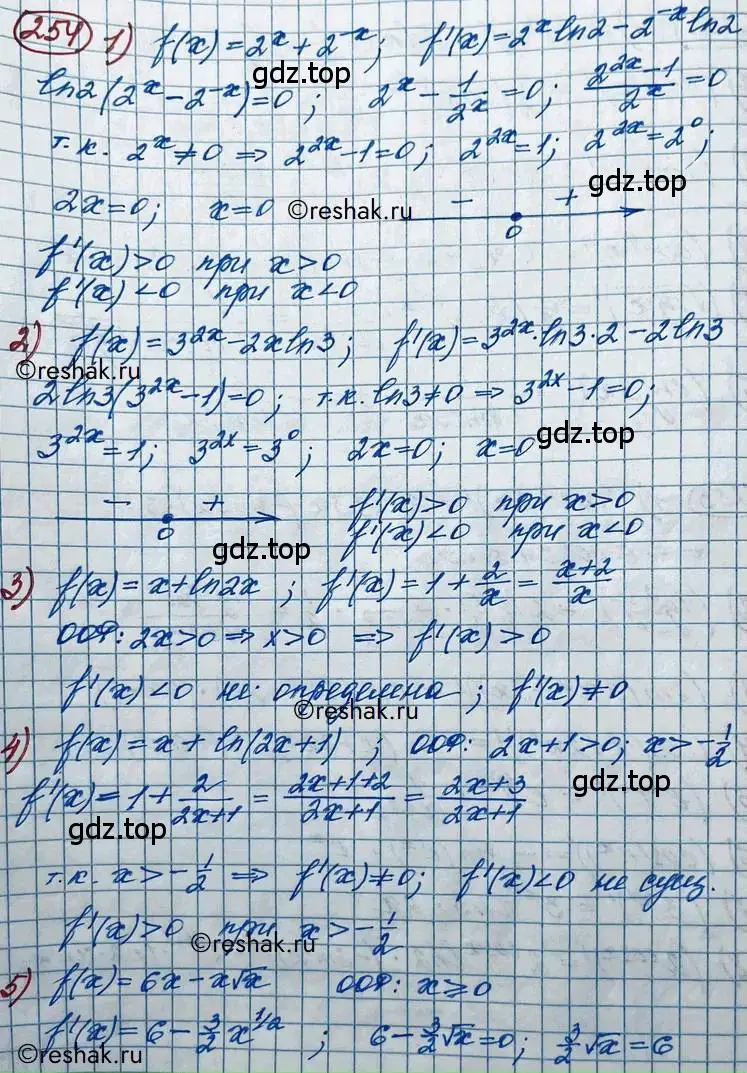 254 1) f(x) = 2^x + 2^{-x}; f'(x) = 2^x ln2 - 2^{-x} ln2
ln2(2^x - 2^{-x}) = 0; 2^x - \frac{1}{2^x} = 0; \frac{2^{2x} - 1}{2^x} = 0
gdz.top
т.к. 2^x ≠ 0 ⇒ 2^{2x} - 1 = 0; 2^{2x} = 1; 2^{2x} = 2^0;
gdz.top
2x = 0; x = 0 ©reshak.ru - + 0
f'(x) > 0 при x > 0
f'(x) < 0 при x < 0
2) f(x) = 3^{2x} - 2x ln3; f'(x) = 3^{2x} · ln3 · 2 - 2 ln3
©reshak.ru
2 ln3(3^{2x} - 1) = 0; т.к. ln3 ≠ 0 ⇒ 3^{2x} - 1 = 0;
3^{2x} = 1; 3^{2x} = 3^0; 2x = 0; x = 0
gdz.top
- + 0 f'(x) > 0 при x > 0
f'(x) < 0 при x < 0
gdz.top
3) f(x) = x + ln2x; f'(x) = 1 + \frac{2}{x} = \frac{x+2}{x}
ООФ: 2x > 0 ⇒ x > 0 ⇒ f'(x) > 0
f'(x) < 0 не определена; f'(x) ≠ 0
©reshak.ru
4) f(x) = x + ln(2x+1); ООФ: 2x+1 > 0; x > -\frac{1}{2}
gdz.top
f'(x) = 1 + \frac{2}{2x+1} = \frac{2x+1+2}{2x+1} = \frac{2x+3}{2x+1}
gdz.top
т.к. x > -\frac{1}{2} ⇒ f'(x) ≠ 0; f'(x) < 0 не сущ.
f'(x) > 0 при x > -\frac{1}{2}
©reshak.ru
5) f(x) = 6x - x√x ООФ: x ⩾ 0
f'(x) = 6 - \frac{3}{2} x^{1/2}; 6 - \frac{3}{2}√x = 0; \frac{3}{2}√x = 6
©reshak.ru